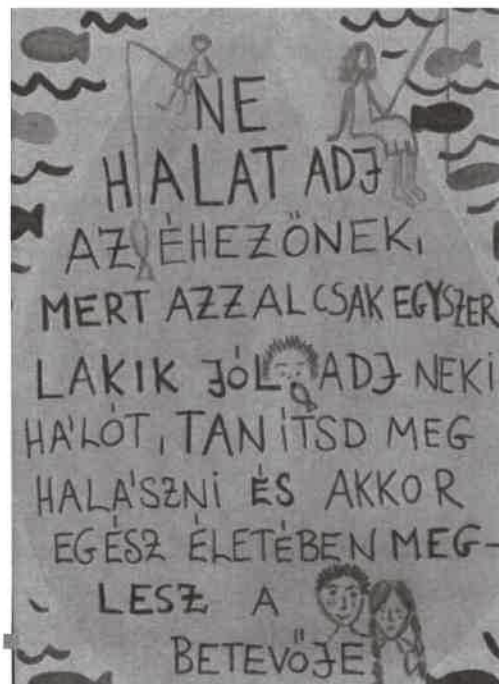 NE
HALAT ADJ
AZ ÉHEZŐNEK,
MERT AZZAL CSAK EGYSZER
LAKIK JÓL ADJ NEKI
HÁLÓT, TANÍTSD MEG
HALÁSZNI ÉS AKKOR
EGÉSZ ÉLETÉBEN MEG-
LESZ A
BETEVŐJE